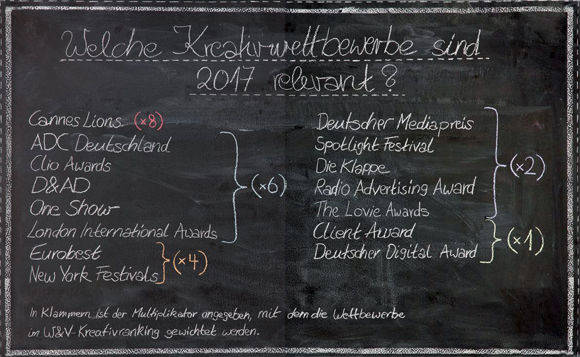 Welche Kreativwettbewerbe sind
2017 relevant?
Cannes Lions (x8)
ADC Deutschland
Clio Awards
D&AD
One Show
London International Awards
(x6)
Eurobest
New York Festivals
(x4)
Deutscher Mediapreis
Spotlight Festival
Die Klappe
Radio Advertising Award
The Lovie Awards
(x2)
Client Award
Deutscher Digital Award
(x1)
In Klammern ist der Multiplikator angegeben, mit dem die Wettbewerbe
im W&V-Kreativranking gewichtet werden.